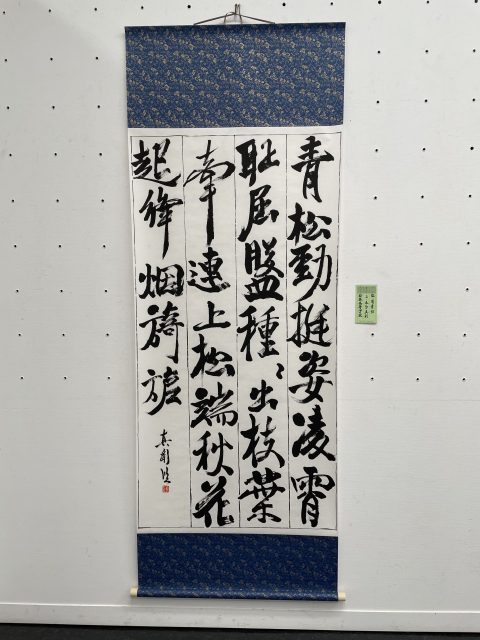 青松勁挺姿凌霄
耻屈盤種〻出枝葉
牽連上松端秋花
起絳烟旖旎